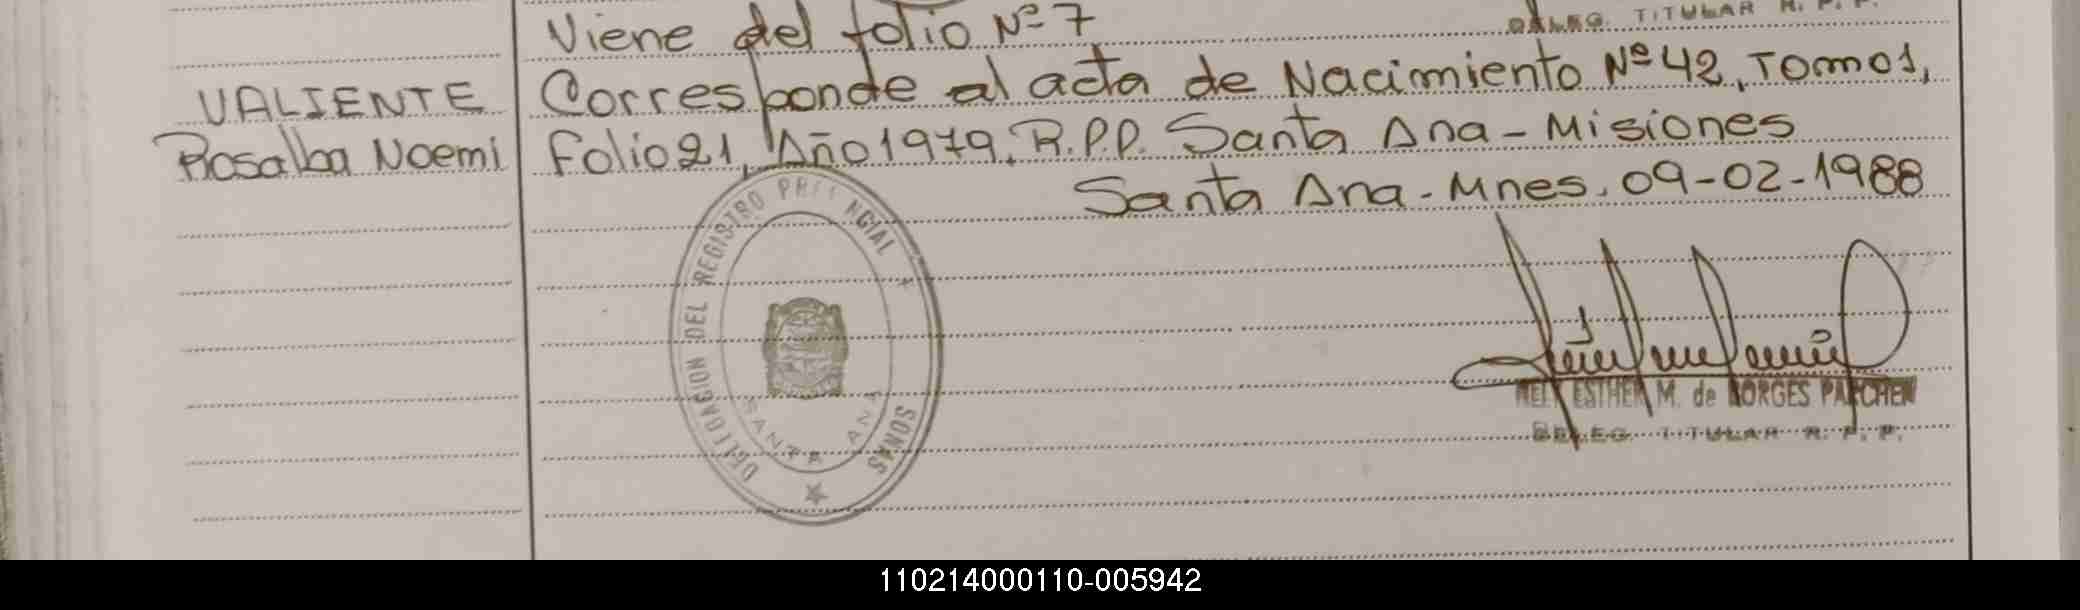 DELEG. TITULAR R. P. P.
Viene del folio Nº 7
VALIENTE
Rosalba Noemi
Corresponde al acta de Nacimiento Nº 42, Tomo 1,
Folio 21, Año 1979. R.P.P. Santa Ana - Misiones
Santa Ana - Mnes. 09-02-1988
DELEGACION DEL REGISTRO PROVINCIAL
PERSONAS
SANTA ANA
ESTHER M. de BORGES PARCHEN
DELEG. TITULAR R. P. P.
110214000110-005942